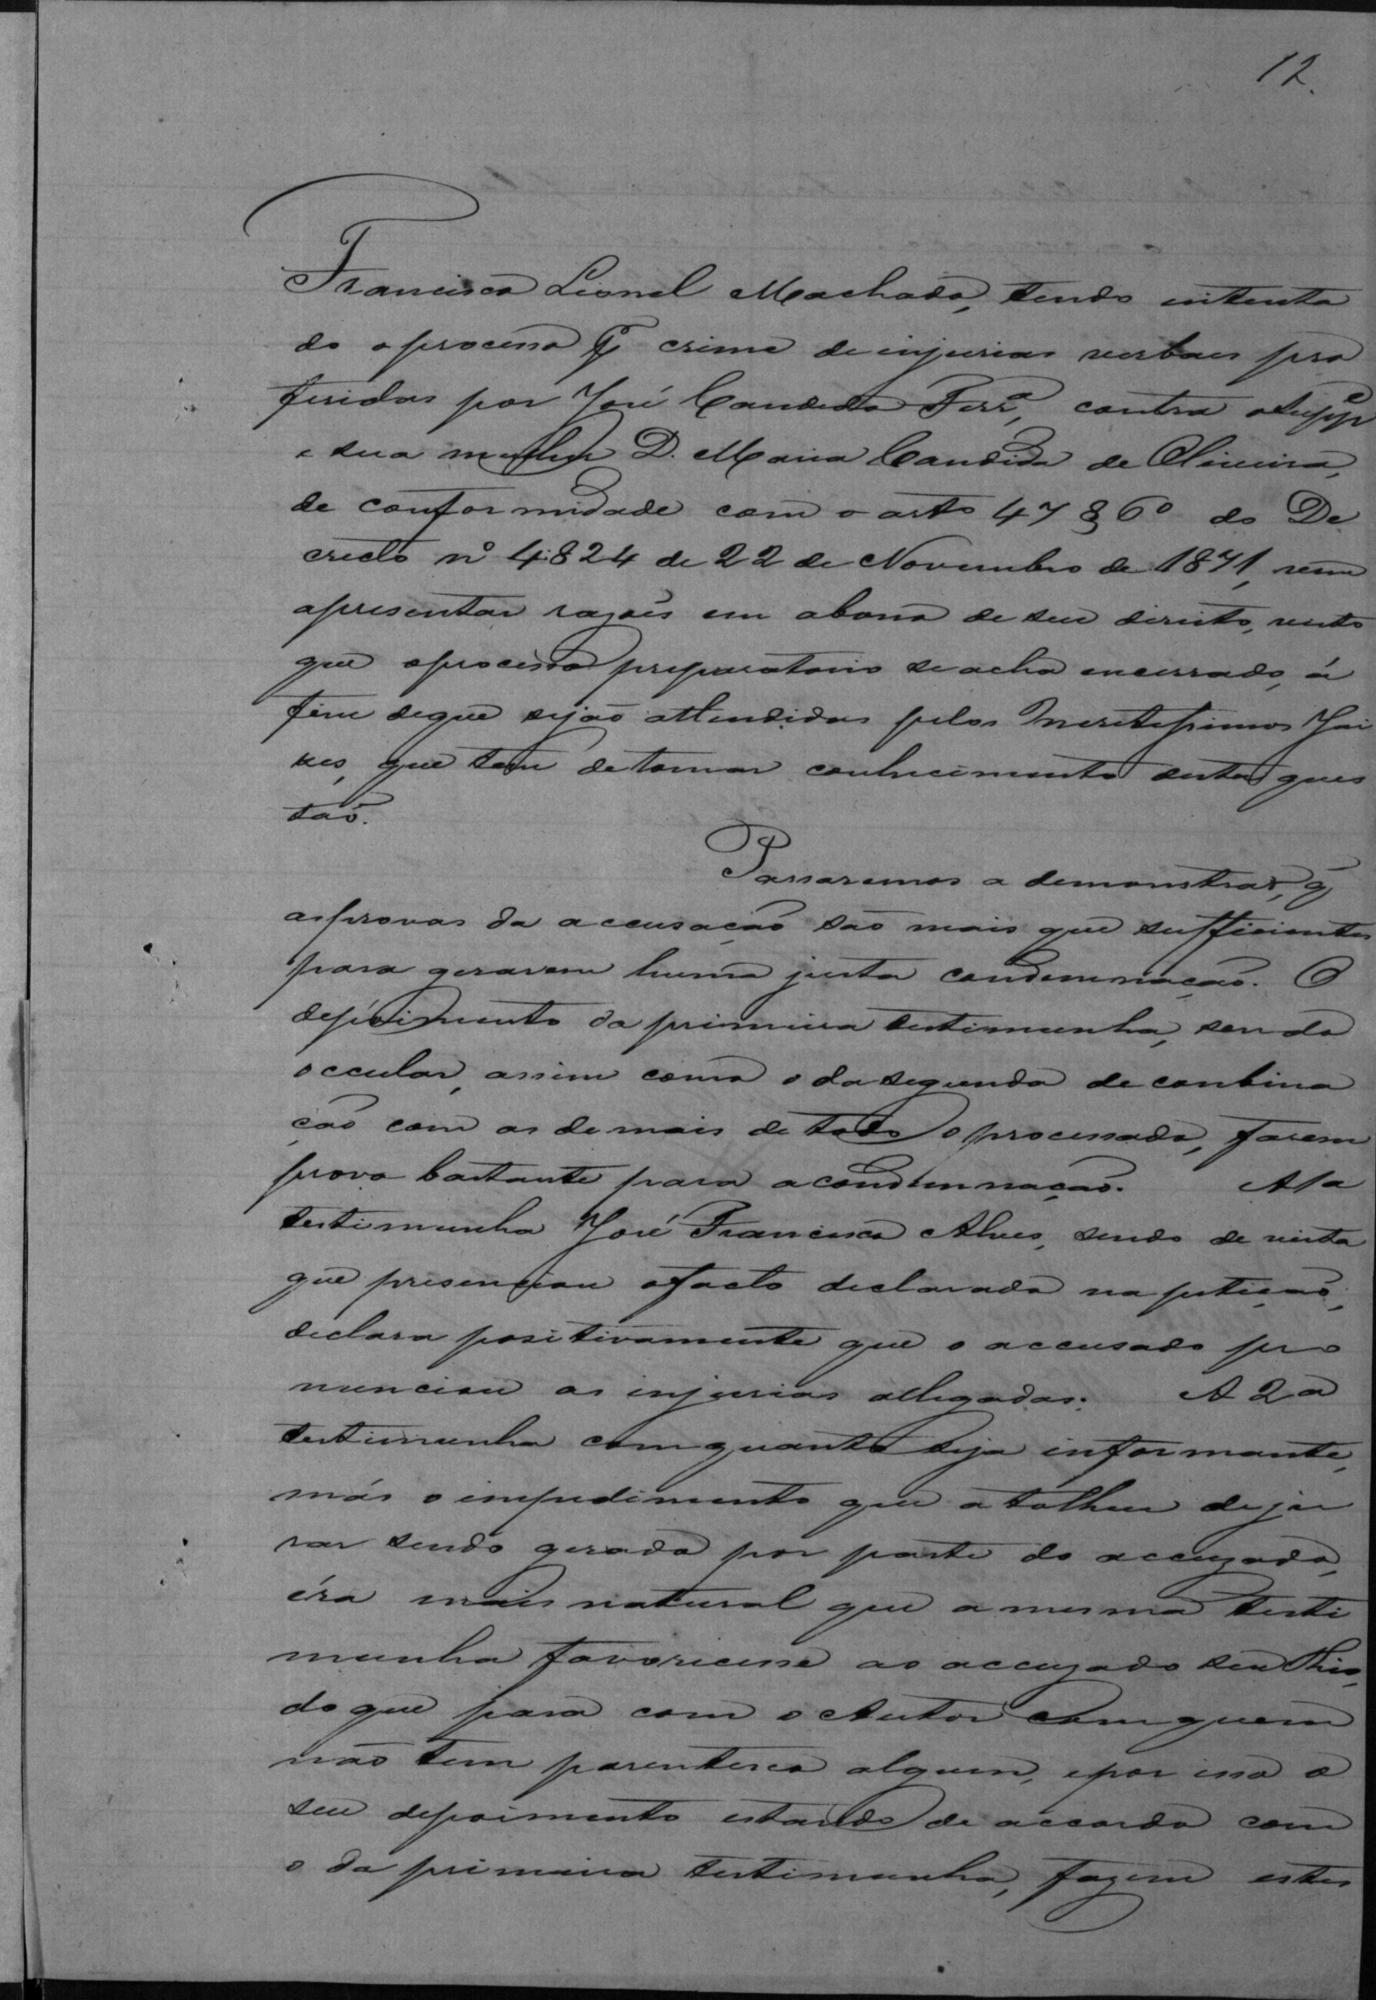 12.
Francisco Lionel Machado, tendo intenta
do o processo p.r crime de injurias verbaes pro
feridas por José Candido Ferr.a, contra o Supp.e
e sua mulher D. Maria Candida de Oliveira,
de conformidade com o arto 47 § 6º do De
creto nº 4824 de 22 de Novembro de 1871, vem
apresentar razoes em abono de seu direito, visto
que o processo preparatorio se acha encerrado, á
fim de que sejão attendidas pelos Meretissimos Jui
zes, que tem de tomar conhecimento desta ques
tão.
Passaremos a demonstrar, q
as provas da accusação são mais que sufficientes
para gerarem huma justa condemnação. O
depoimento da primeira testimunha, sendo
occular, assim como o da segunda de conbina
ção com as de mais de todo o processado, fasem
prova bastante para a condemnação. A 1a
testimunha José Francisco Alves, sendo de vista
que presenciou o facto declarado na petição,
declara positivamente que o accusado pro
nunciou as injurias allegadas. A 2a
testimunha com quanto seja informante,
más o impedimento que a tolheu de ju
rar sendo gerado por parte do accuzado,
éra mais natural que a mesma testi
munha favorecesse ao accuzado seu Thio,
do que para com o Autor com quem
não tem parentesco algum, e por isso o
seu depoimento estando de accordo com
o da primeira testimunha, fazem estes